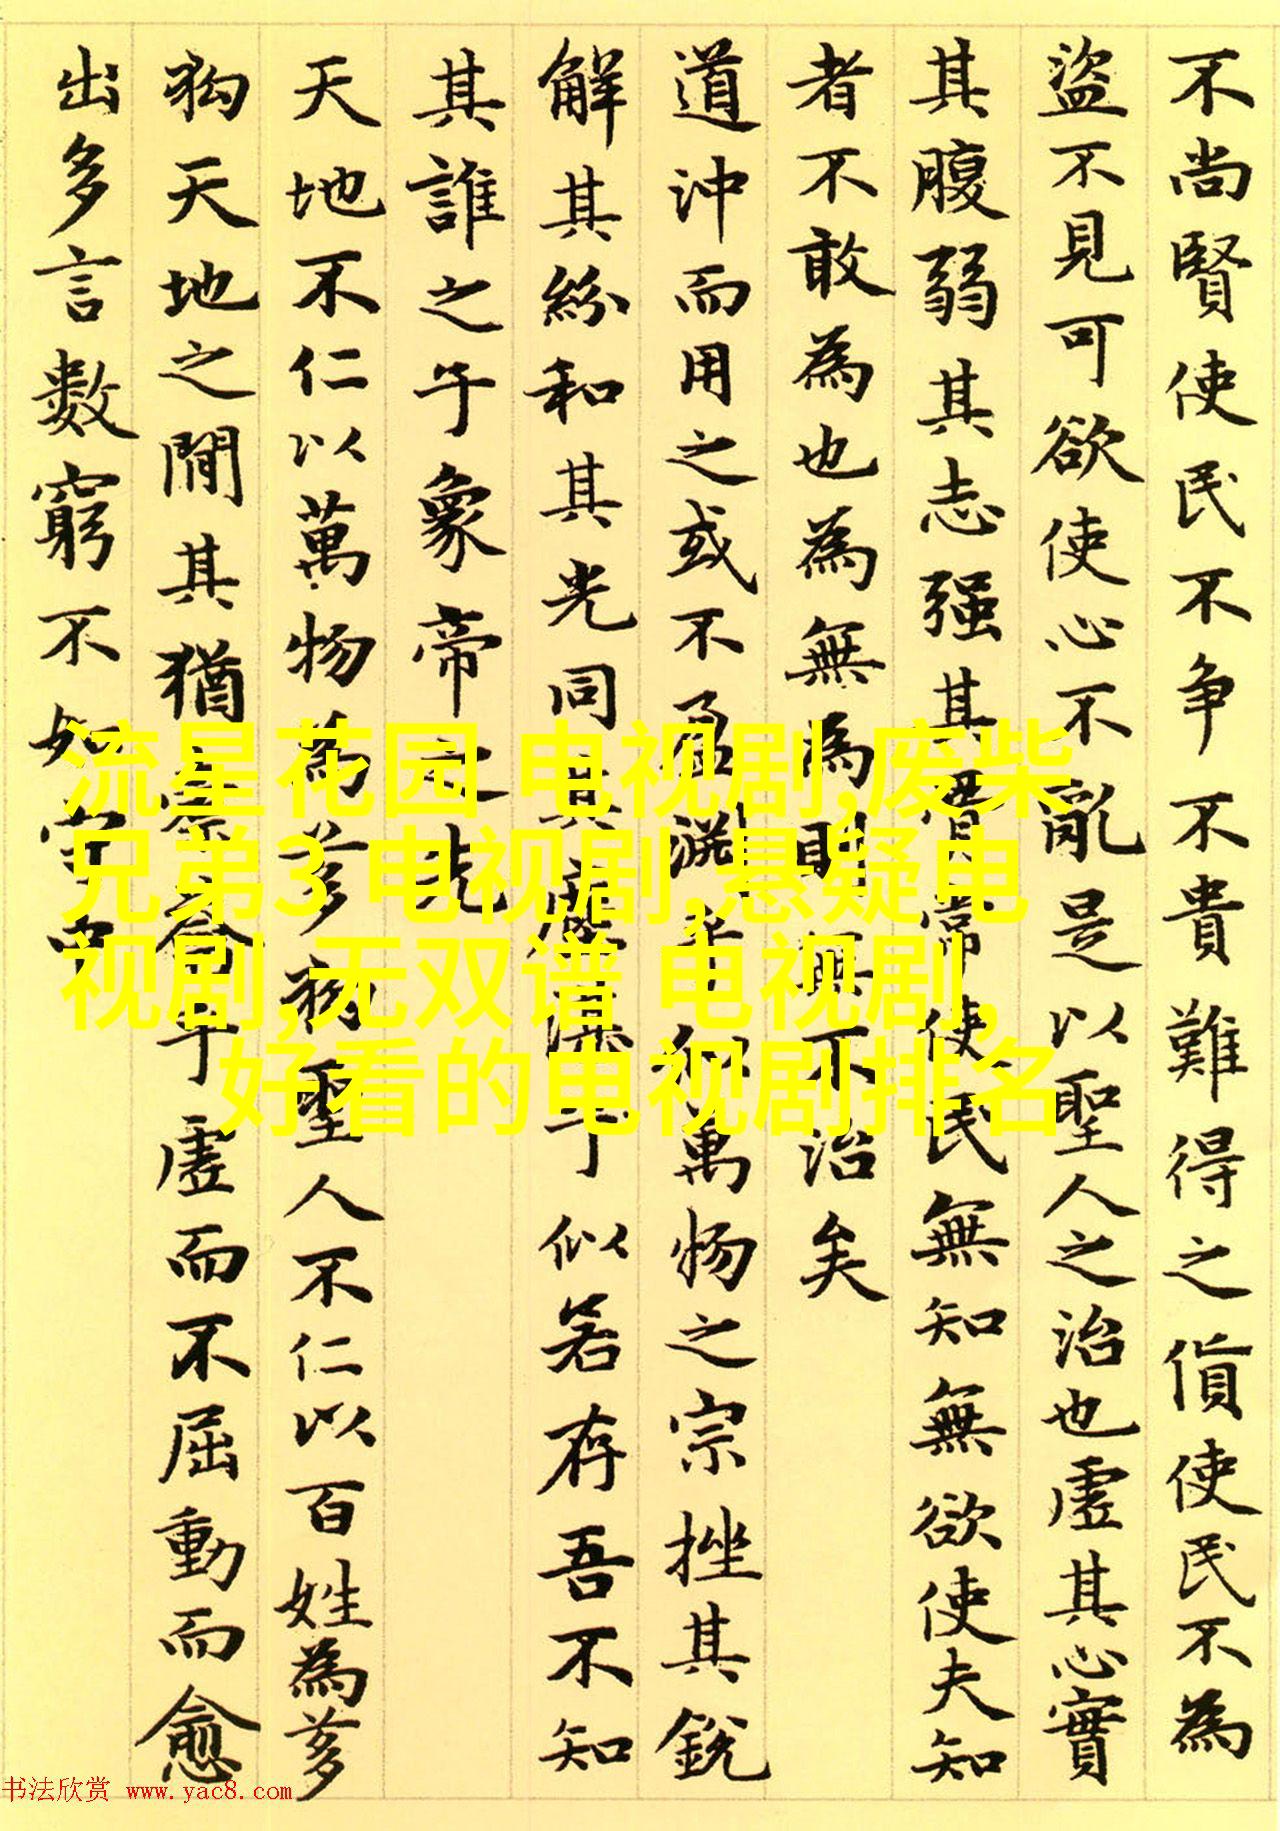 不尚賢使民不争不貴難得之貨使民不為
盜不見可欲使心不亂是以聖人之治也虛其心實
其腹弱其志强其骨常使民無知無欲使夫知
者不敢為也為無為則無不治矣
道沖而用之或不盈淵乎似萬物之宗挫其銳
解其紛和其光同其塵湛乎似若存吾不知
其誰之子象帝之先
天地不仁以萬物為芻狗聖人不仁以百姓為芻
狗天地之間其猶橐籥乎虛而不屈動而愈
出多言數窮不如守中
流星花园 电视剧,废柴
兄弟3 电视剧,悬疑电
视剧,无双谱 电视剧,
好看的电视剧排名
书法欣赏 www.yac8.com